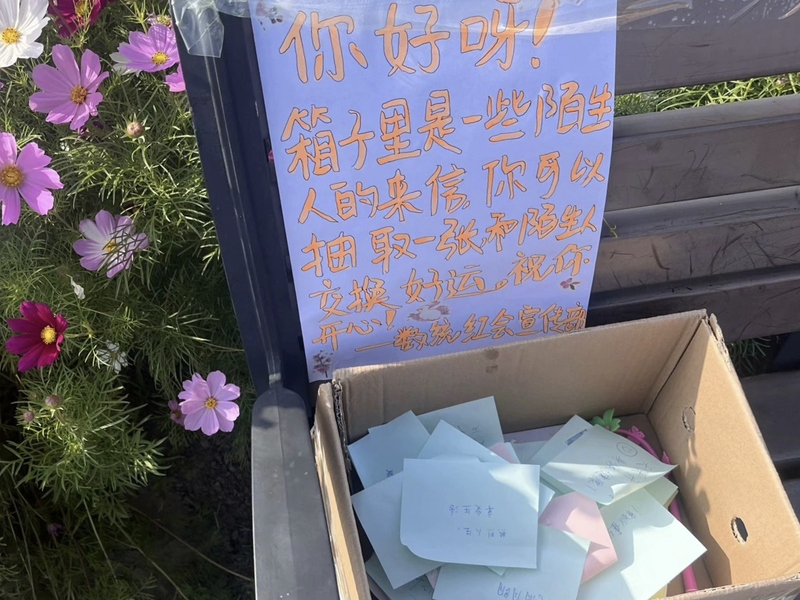 你好呀!
箱子里是一些陌生
人的来信,你可以
抽取一张,和陌生人
交换好运。祝你
开心!
——数统红会宣传部
享受生活